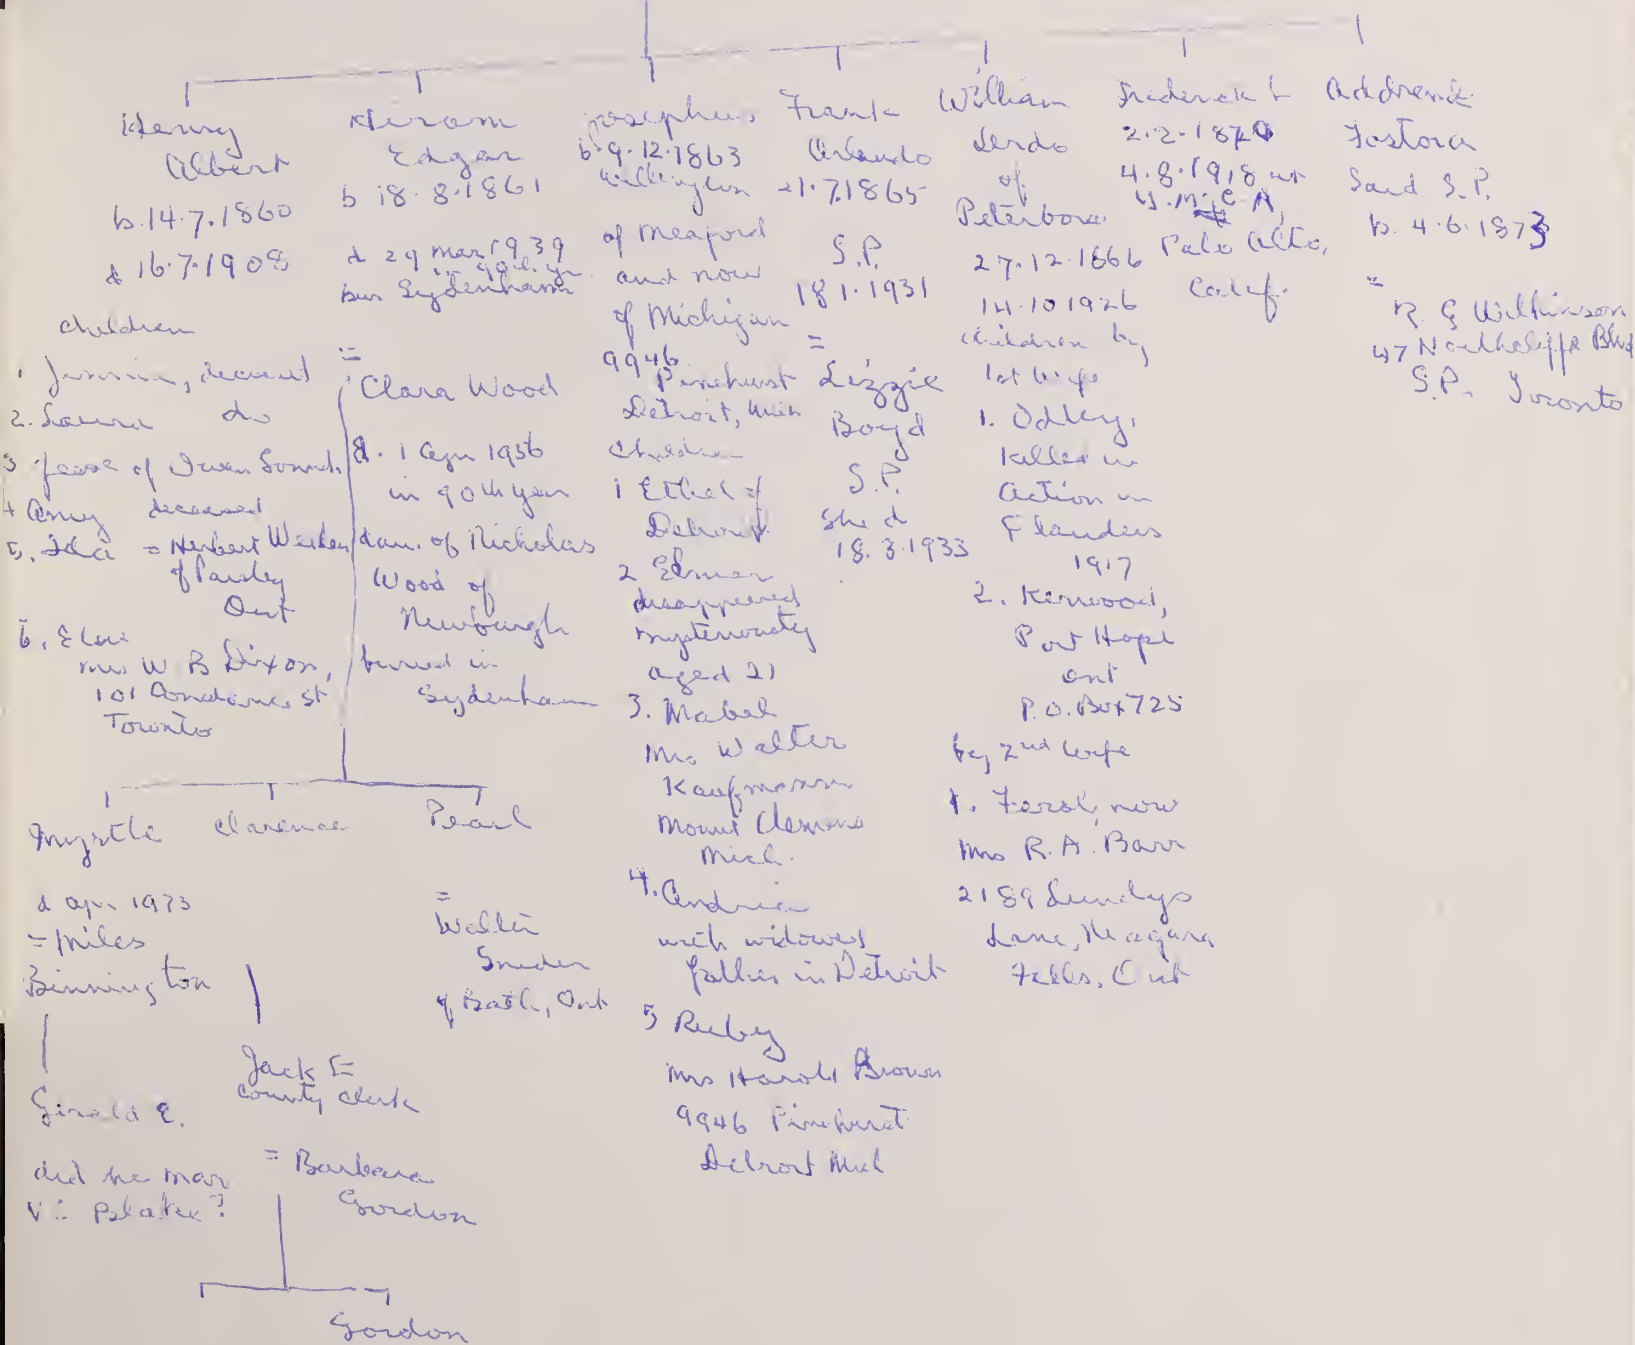 Henry
Albert
b. 14.7.1860
d 16.7.1908
children
1 Jennie, deceased
2. Laura do
3 Jesse of Owen Sound
4 Amy deceased
5. Ida = Herbert
of Paisley
Ont
6.
Mrs W B Dixon,
101 St
Toronto
Hiram
Edgar
b 18.8.1861
d 29 Mar 1939
in yr
bur Sydenham
=
Clara Wood
d. 1 Apr 1956
in 90th year
dau. of Nicholas
Wood of
Newburgh
buried in
Sydenham
Myrtle
d Apr 1973
= Miles
Binnington
Gerald E.
did he mar
Vi Blake?
Jack E
County Clerk
= Barbara
Gordon
Gordon
Clarence
Pearl
=
Walter
Snider
of Bath, Ont
Josephus
b. 9.12.1863
Wellington
of Meaford
and now
of Michigan
9946
Pinehurst
Detroit, Mich
Children
1 Ethel of
Detroit
2 Elmer
disappeared
mysteriously
aged 21
3. Mabel
Mrs Walter
Kaufmann
Mount Clemens
Mich.
4. Andrew
with widowed
father in Detroit
5 Ruby
Mrs Harold Brown
9946 Pinehurst
Detroit Mich
Frank
Orlando
21.7.1865
S.P.
18.1.1931
=
Lizzie
Boyd
S.P.
She d
18.3.1933
William
Lerdo
of
Peterboro
27.12.1866
14.10.1926
children by
1st wife
1. Odley,
killed in
action in
Flanders
1917
2. Kenwood,
Port Hope
Ont
P.O. Box 725
by 2nd wife
1. Ferol, now
Mrs R.A. Barr
2189 Lundys
Lane, Niagara
Falls, Ont
Frederick L
2.2.1870
4.8.1918 at
Y.M.C.A,
Palo Alto,
Calif.
Fostora
S.P.
b. 4.6.1873
=
R. G Wilkinson
47 Northcliffe Blvd
S.P. Toronto